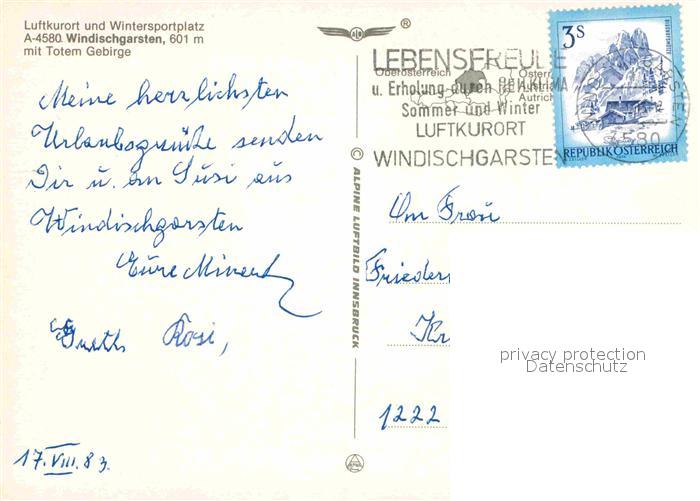 Luftkurort und Wintersportplatz
A-4580 Windischgarsten, 601 m
mit Totem Gebirge
Meine herzlichsten
Urlaubsgrüße senden
Dir u. an Susi aus
Windischgarsten
Eure
Rosi,
17.VIII.83.
®
© ALPINE LUFTBILD INNSBRUCK
LEBENSFREUDE
u. Erholung durch REIZKLIMA
Sommer und Winter
LUFTKURORT
WINDISCHGARSTEN
Oberösterreich
Autrich
3S
REPUBLIK ÖSTERREICH
4580
An Frau
Frieder
Kr
1222
privacy protection
Datenschutz